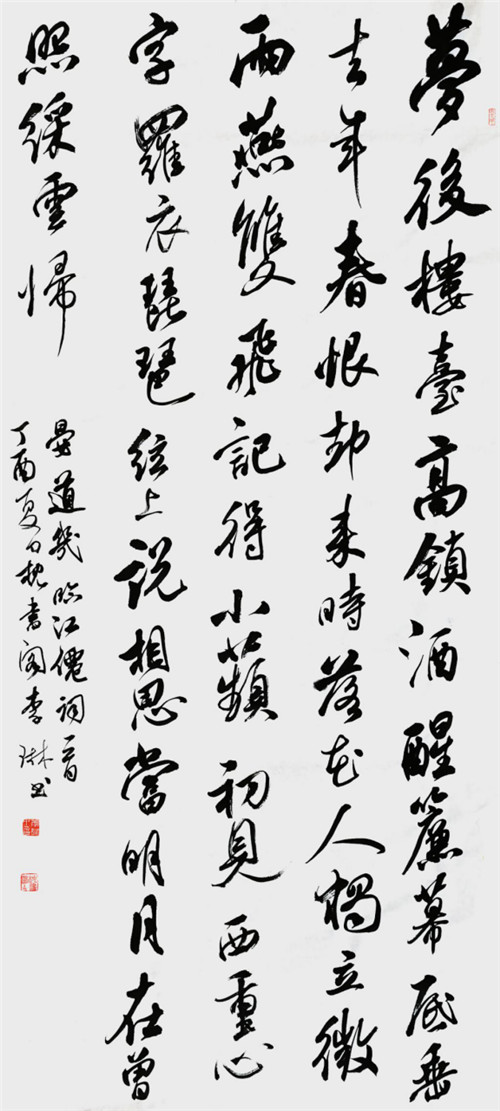 夢後樓臺高鎖酒醒簾幕低垂
去年春恨却來時落花人獨立微
雨燕雙飛記得小蘋初見兩重心
字羅衣琵琶絃上説相思當明月在曾
照綵雲歸
晏道幾臨江僊詞一首
丁酉夏日書閣李琳书